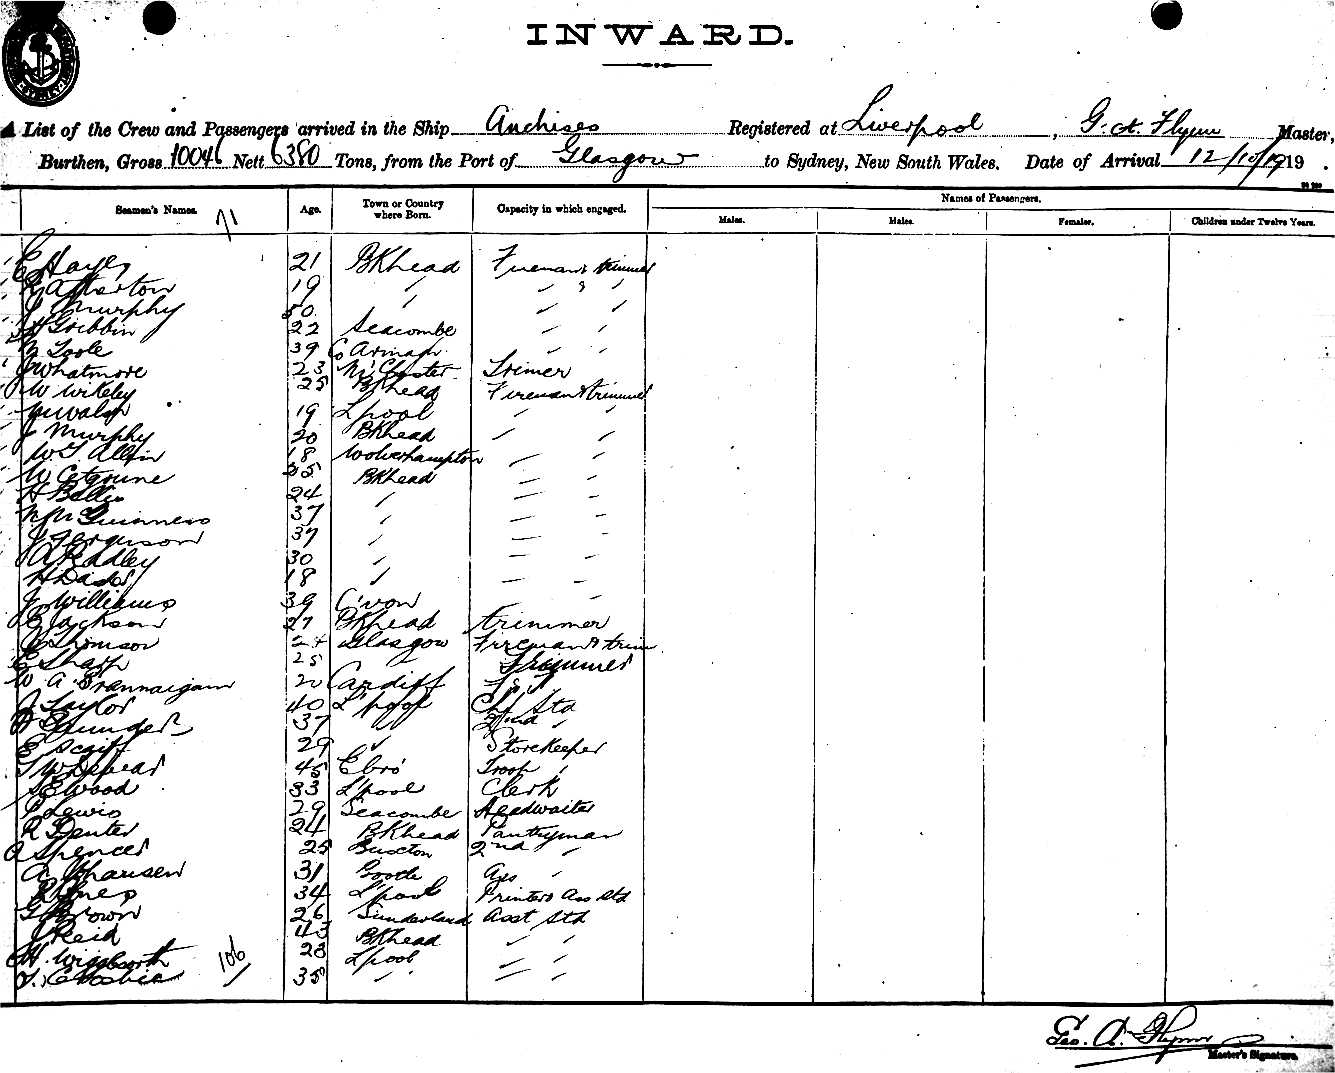 INWARD.
SYDNEY
A List of the Crew and Passengers arrived in the Ship Anchises Registered at Liverpool, G. A. Flynn Master,
Burthen, Gross 10046 Nett 6380 Tons, from the Port of Glasgow to Sydney, New South Wales. Date of Arrival 12/10/19 19 .
Names of Passengers.
Seamen's Names. Age. Town or Country where Born. Capacity in which engaged. Males. Males. Females. Children under Twelve Years.
71
E Hayes 21 BKhead Fireman & trimmer
19 " " & "
J Murphy 50 " " "
H Gribbin 22 Seacombe " "
Toole 39 Co Armagh " "
J Whatmore 23 M'Chester Trimer
W Wikeley 25 BKhead Fireman & trimmer
M Walsh 19 L'pool " "
J Murphy 20 BKhead " "
W T. Allen 18 Wolverhampton " "
W 35 BKhead " "
H 24 " " "
McGuinness 37 " " "
J Ferguson 37 " " "
A Radley 30 " " "
H 18 " " "
J Williams 39 C'von " "
E Jackson 27 BKhead trimmer
Thomson 24 Glasgow Fireman & trim
E Sharp 25 Trimmer
W A Brannaigam 20 Cardiff
J Taylor 40 L'pool Chf Std
37 " 2nd "
E Scaiff 29 " Storekeeper
45 Ebro Troop "
S E Wood 33 L'pool Clerk
Lewis 29 Seacombe Headwaiter
R Denter 24 BKhead Pantryman
A Spencer 25 Buxton 2nd "
A 31 Bootle Ass "
34 L'pool Printer & Ass Std
G Brown 26 Sunderland Asst Std
J Reid 43 BKhead " "
H. Wigglesworth 23 L'pool " "
35 " " "
106
Geo. A. Flynn
Master's Signature.